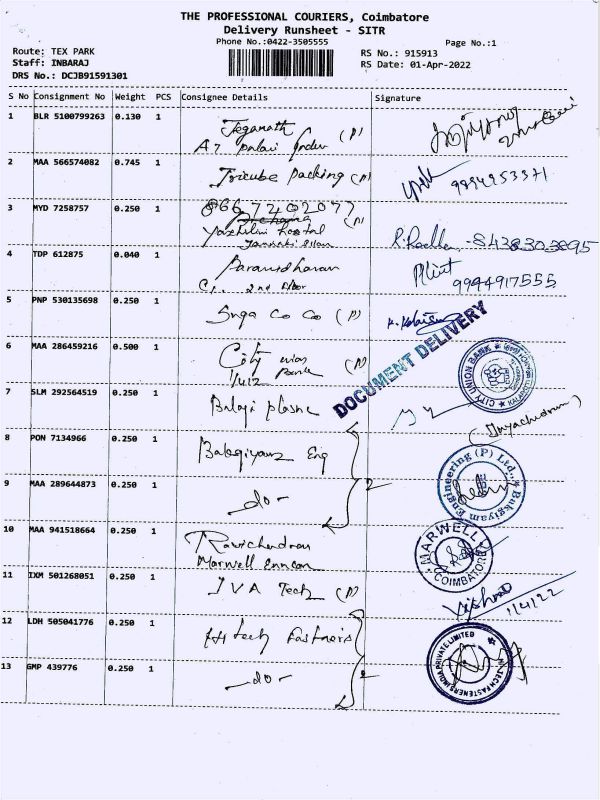 THE PROFESSIONAL COURIERS, Coimbatore
Delivery Runsheet - SITR
Phone No.:0422-3505555
Page No.:1
Route: TEX PARK
RS No.: 915913
Staff: INBARAJ
RS Date: 01-Apr-2022
DRS No.: DCJB91591301
S No Consignment No Weight PCS Consignee Details Signature
1 BLR 5100799263 0.130 1 Jeganath (P)
2 MAA 566574082 0.745 1 Tricube packing (P) 9894253371
3 MYD 7258757 0.250 1 8667240207
Yazhilini Hostel (P)
R. Radha - 8438303895
4 TDP 612875 0.040 1 Paranidharan
2nd Floor
9944917555
5 PNP 530135698 0.250 1 Co Co (P)
6 MAA 286459216 0.500 1 City union (P)
Bank
DOCUMENT DELIVERY
CITY UNION BANK
7 SLM 292564519 0.250 1 Balaji
8 PON 7134966 0.250 1 Eng
2
Bakgiyam Engineering (P) Ltd.,
9 MAA 289644873 0.250 1 - do -
10 MAA 941518664 0.250 1 Ravichandran
Marwell
MARWELL
COIMBATORE
11 IXM 501268051 0.250 1 IVA Tech (P)
1/4/22
12 LDH 505041776 0.250 1 Hi tech Fastners
2
HI-TECH FASTENERS INDIA PRIVATE LIMITED
13 GMP 439776 0.250 1 - do -